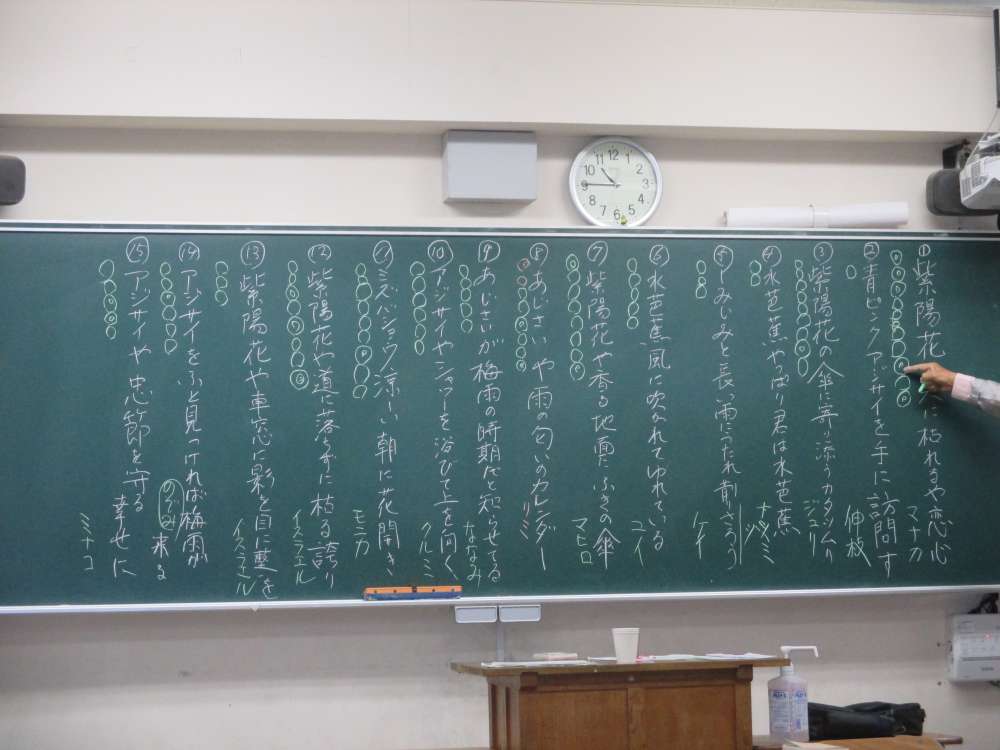 ①紫陽花 に枯れるや恋心
マナカ
②青ピンクアジサイを手に訪問す
伸枝
③紫陽花の傘に寄り添うカタツムリ
ジュリ
④水芭蕉やっぱり君は水芭蕉
ナツミ
⑤しみじみと長い雨にうたれ
ケイ
⑥水芭蕉風に吹かれてゆれている
ユイ
⑦紫陽花や香る地面にふきの傘
マヒロ
⑧あじさいや雨の匂いのカレンダー
リミ
⑨あじさいが梅雨の時期だと知らせてる
ななみ
⑩アジサイやシャワーを浴びて上を向く
クルミ
⑪ミズバショウ涼しい朝に花開き
モニカ
⑫紫陽花や道に落ちずに枯る誇り
イスラエル
⑬紫陽花や車窓に影を目に藍を
イスラエル
⑭アジサイをふと見つければ梅雨が来る
のぞみ
⑮アジサイや忠節を守る幸せに
ミナコ
12
1
2
3
4
5
6
7
8
9
10
11